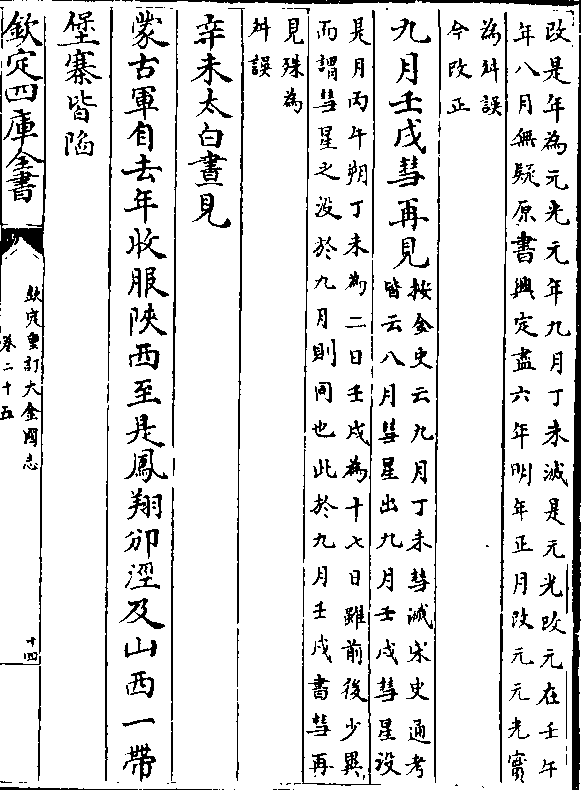 改是年為元光元年九月丁未滅是元光改元在壬午
年八月無疑原書興定盡六年明年正月改元元光實
為舛誤
今改正
九月壬戌彗再見
按金史云九月丁未彗滅宋史通考
皆云八月彗星出九月壬戌彗星没
是月丙午朔丁未為二日壬戌為十七日雖前後少異
而謂彗星之没於九月則同也此於九月壬戌書彗再
見殊為
舛誤
辛未太白晝見
蒙古軍自去年收服陜西至是鳳翔邠涇及山西一帶
堡寨皆陷
欽定四庫全書
欽定重訂大金國志
卷二十五
十四